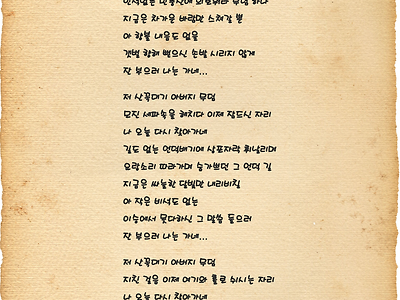 인적없는 민둥산에 외로워라 무덤 하나
지금은 차가운 바람만 스쳐갈 뿐
아 향불 내음도 없을
갯벌 향해 뻗으신 손발 시리지 않게
잔 부으러 나는 가네...
저 산꼭대기 아버지 무덤
모진 세파속을 헤치다 이제 잠드신 자리
나 오늘 다시 찾아가네
길도 없는 언덕배기에 상포자락 휘날리며
요랑소리 따라가며 숨가쁘던 그 언덕 길
지금은 싸늘한 달빛만 내리비칠
아 작은 비석도 없는
이승에서 못다하신 그 말씀 들으러
잔 부으러 나는 가네...
저 산꼭대기 아버지 무덤
지친 걸음 이제 여기와 홀로 쉬시는 자리
나 오늘 다시 찾아가네